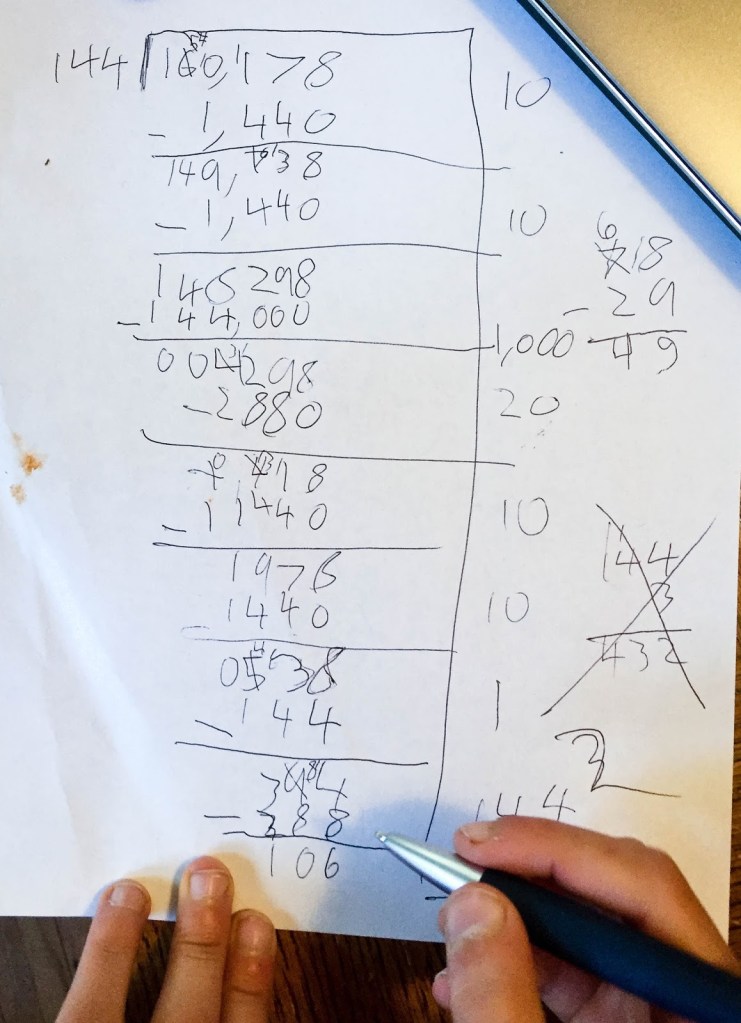 144 160,178 10
- 1,440
149, 738
- 1,440 10
146298
- 144,000 1,000
004298
- 2880 20
- 1440 10
1976
- 1440 10
0538
- 144 1
394
- 288
106
144
6
718
- 29
49
144
3
432
2